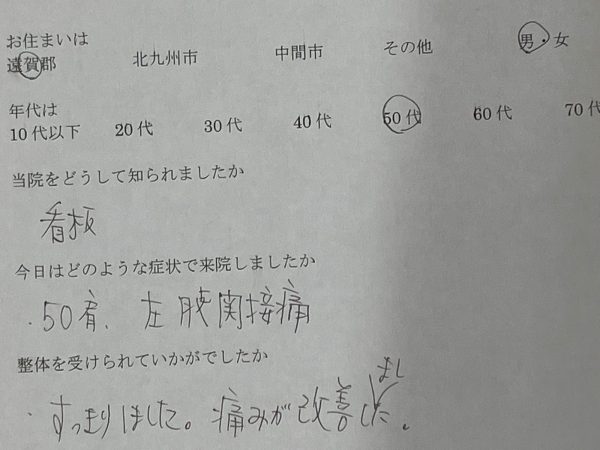 お住まいは
遠賀郡 北九州市 中間市 その他 男・女
年代は
10代以下 20代 30代 40代 50代 60代 70代
当院をどうして知られましたか
看板
今日はどのような症状で来院しましたか
・50肩、左股関接痛
整体を受けられていかがでしたか
・すっきりしました。痛みが改善しました。